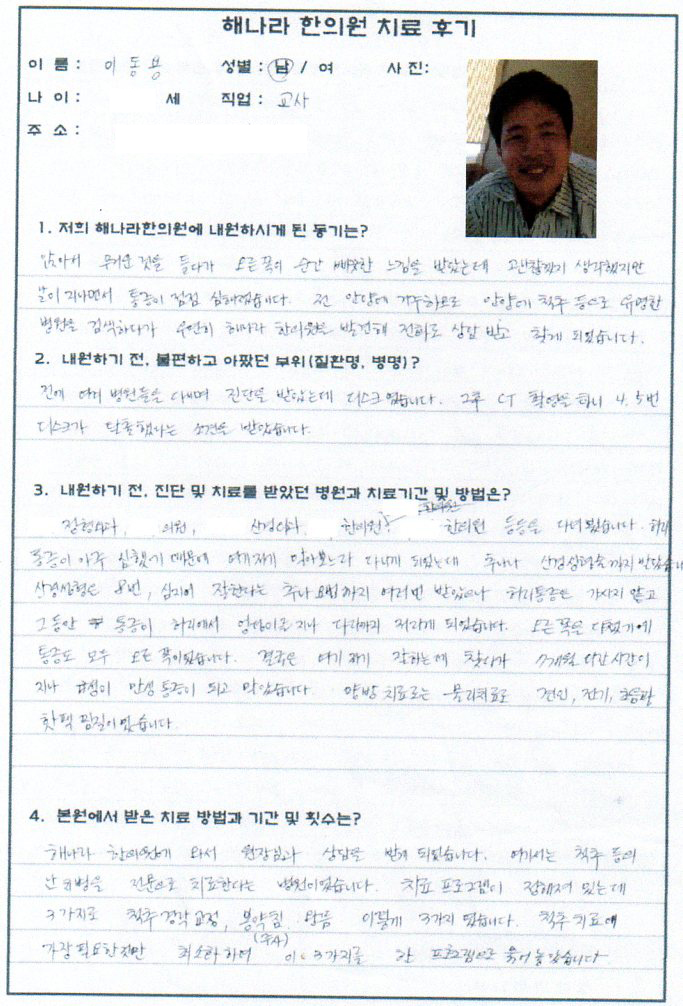 해나라 한의원 치료 후기
이 름 : 이동용 성별 : 남 / 여 사 진:
나 이 : 세 직업 : 교사
주 소 :
1. 저희 해나라한의원에 내원하시게 된 동기는?
앉아서 무거운 것을 들다가 오른쪽이 순간 삐끗한 느낌을 받았는데 괜찮겠지 생각했지만
날이 지나면서 통증이 점점 심해졌습니다. 전 안양에 거주하므로 안양에 척추 등으로 유명한
병원을 검색하다가 우연히 해나라 한의원을 발견해 전화로 상담 받고 찾게 되었습니다.
2. 내원하기 전, 불편하고 아팠던 부위(질환명, 병명)?
전에 여러 병원들을 다니며 진단을 받았는데 디스크였습니다. 그후 CT 촬영을 하니 4, 5번
디스크가 탈출했다는 소견을 받았습니다.
3. 내원하기 전, 진단 및 치료를 받았던 병원과 치료기간 및 방법은?
한의원
정형외과, 의원, 신경외과, 한의원, 한의원 등등을 다녀왔습니다. 허리
통증이 아주 심했기 때문에 여기저기 알아보느라 다니게 되었는데 추나나 신경성형술까지 받았습니
신경성형은 8번, 심지어 잘한다는 추나요법까지 여러번 받았으나 허리통증은 가시지 않고
그동안 통증이 허리에서 엉덩이로 지나 다리까지 저리게 되었습니다. 오른쪽을 다쳤기에
통증도 모두 오른쪽이었습니다. 결국은 여기저기 잘하는데 찾다가 7개월 시간이
지나 급성이 만성 통증이 되고 말았습니다. 양방 치료로는 물리치료로 견인, 전기, 초음파
핫팩 찜질이었습니다.
4. 본원에서 받은 치료 방법과 기간 및 횟수는?
해나라 한의원에 와서 원장님과 상담을 받게 되었습니다. 여기서는 척추 등의
난치병을 전문으로 치료한다는 병원이었습니다. 치료 프로그램이 정해져 있는데
3가지로 척추 경락교정, 봉약침, 한약 이렇게 3가지 였습니다. 척추 치료에
(주사)
가장 필요한 것만 최소화하여 이 3가지를 한 프로그램으로 묶어 놓았습니다